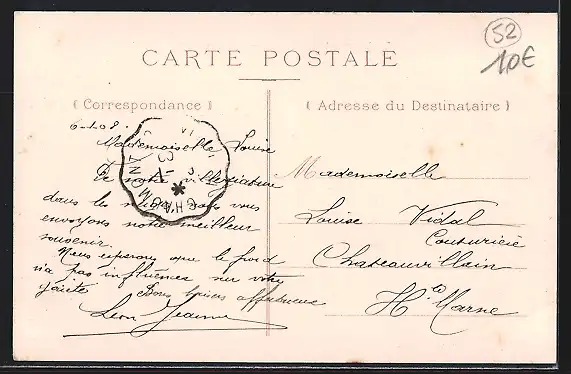 52
10€
CARTE POSTALE
( Correspondance )
( Adresse du Destinataire )
6-1-08.
Mademoiselle Louise
De notre villégiature
dans les nous vous
envoyons notre meilleur
souvenir
Nous esperons que le froid
n'a pas influences sur votre
gaieté Bons baisers affectueux
Léon Jeanne
Mademoiselle
Louise Vidal
Couturière
Chateauvillain
Hte Marne